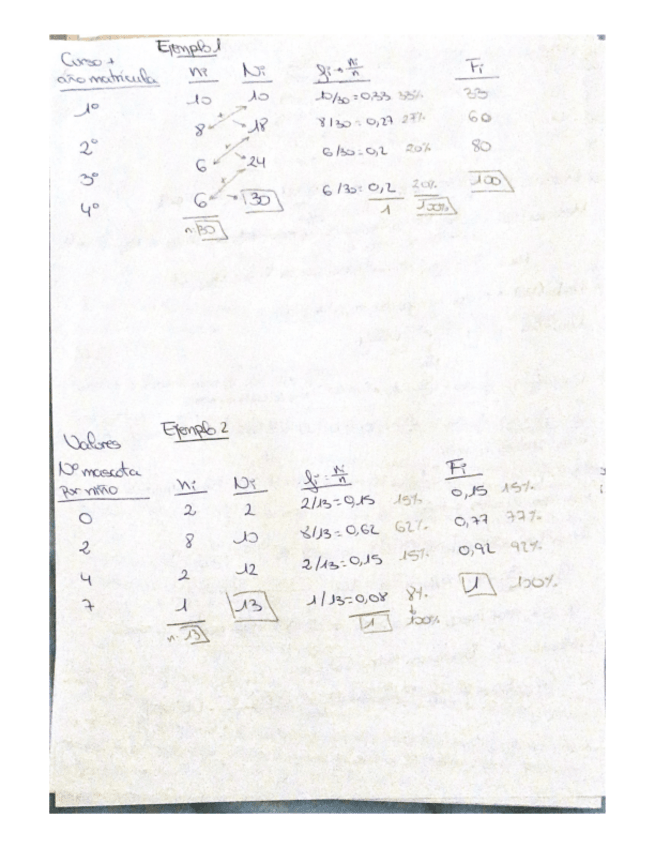 Ejemplo 1
Curso +
año matrícula ni Ni fi → ni/n Fi
1º 10 10 10/30 = 0,33 33% 33
8 18 8/30 = 0,27 27% 60
2º 6 24 6/30 = 0,2 20% 80
3º
4º 6 30 6/30 = 0,2 20% 100
n: 30 1 100%
Ejemplo 2
Valores
Nº mascota
por niño ni Ni fi = ni/n Fi
0 2 2 2/13 = 0,15 15% 0,15 15%
2 8 10 8/13 = 0,62 62% 0,77 77%
4 2 12 2/13 = 0,15 15% 0,92 92%
7 1 13 1/13 = 0,08 8% 1 100%
n: 13 1 100%